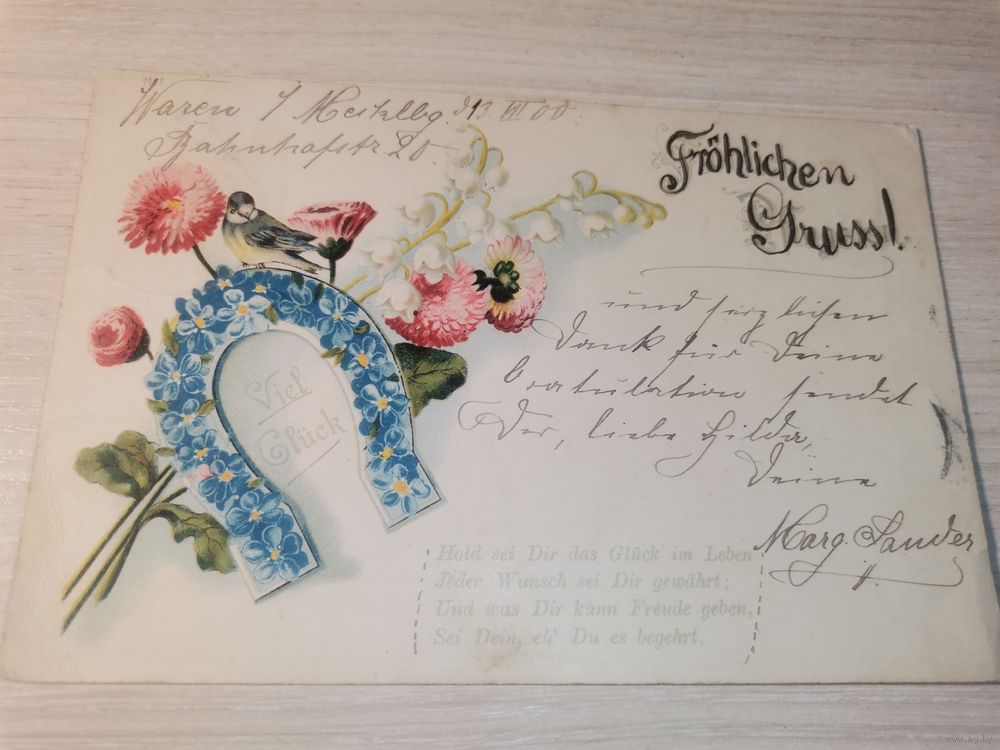 Waren i/ Mecklbg. d. 13. VII 00.
Bahnhofstr 20.
Fröhlichen
Gruss!
und herzlichen
Dank für Deine
Gratulation sendet
Dir, liebe Hilda,
Deine
Marg. Sander
Viel
Glück
Hold sei Dir das Glück im Leben
Jeder Wunsch sei Dir gewährt;
Und was Dir kann Freude geben,
Sei Dein, eh' Du es begehrt.
www.ay.by